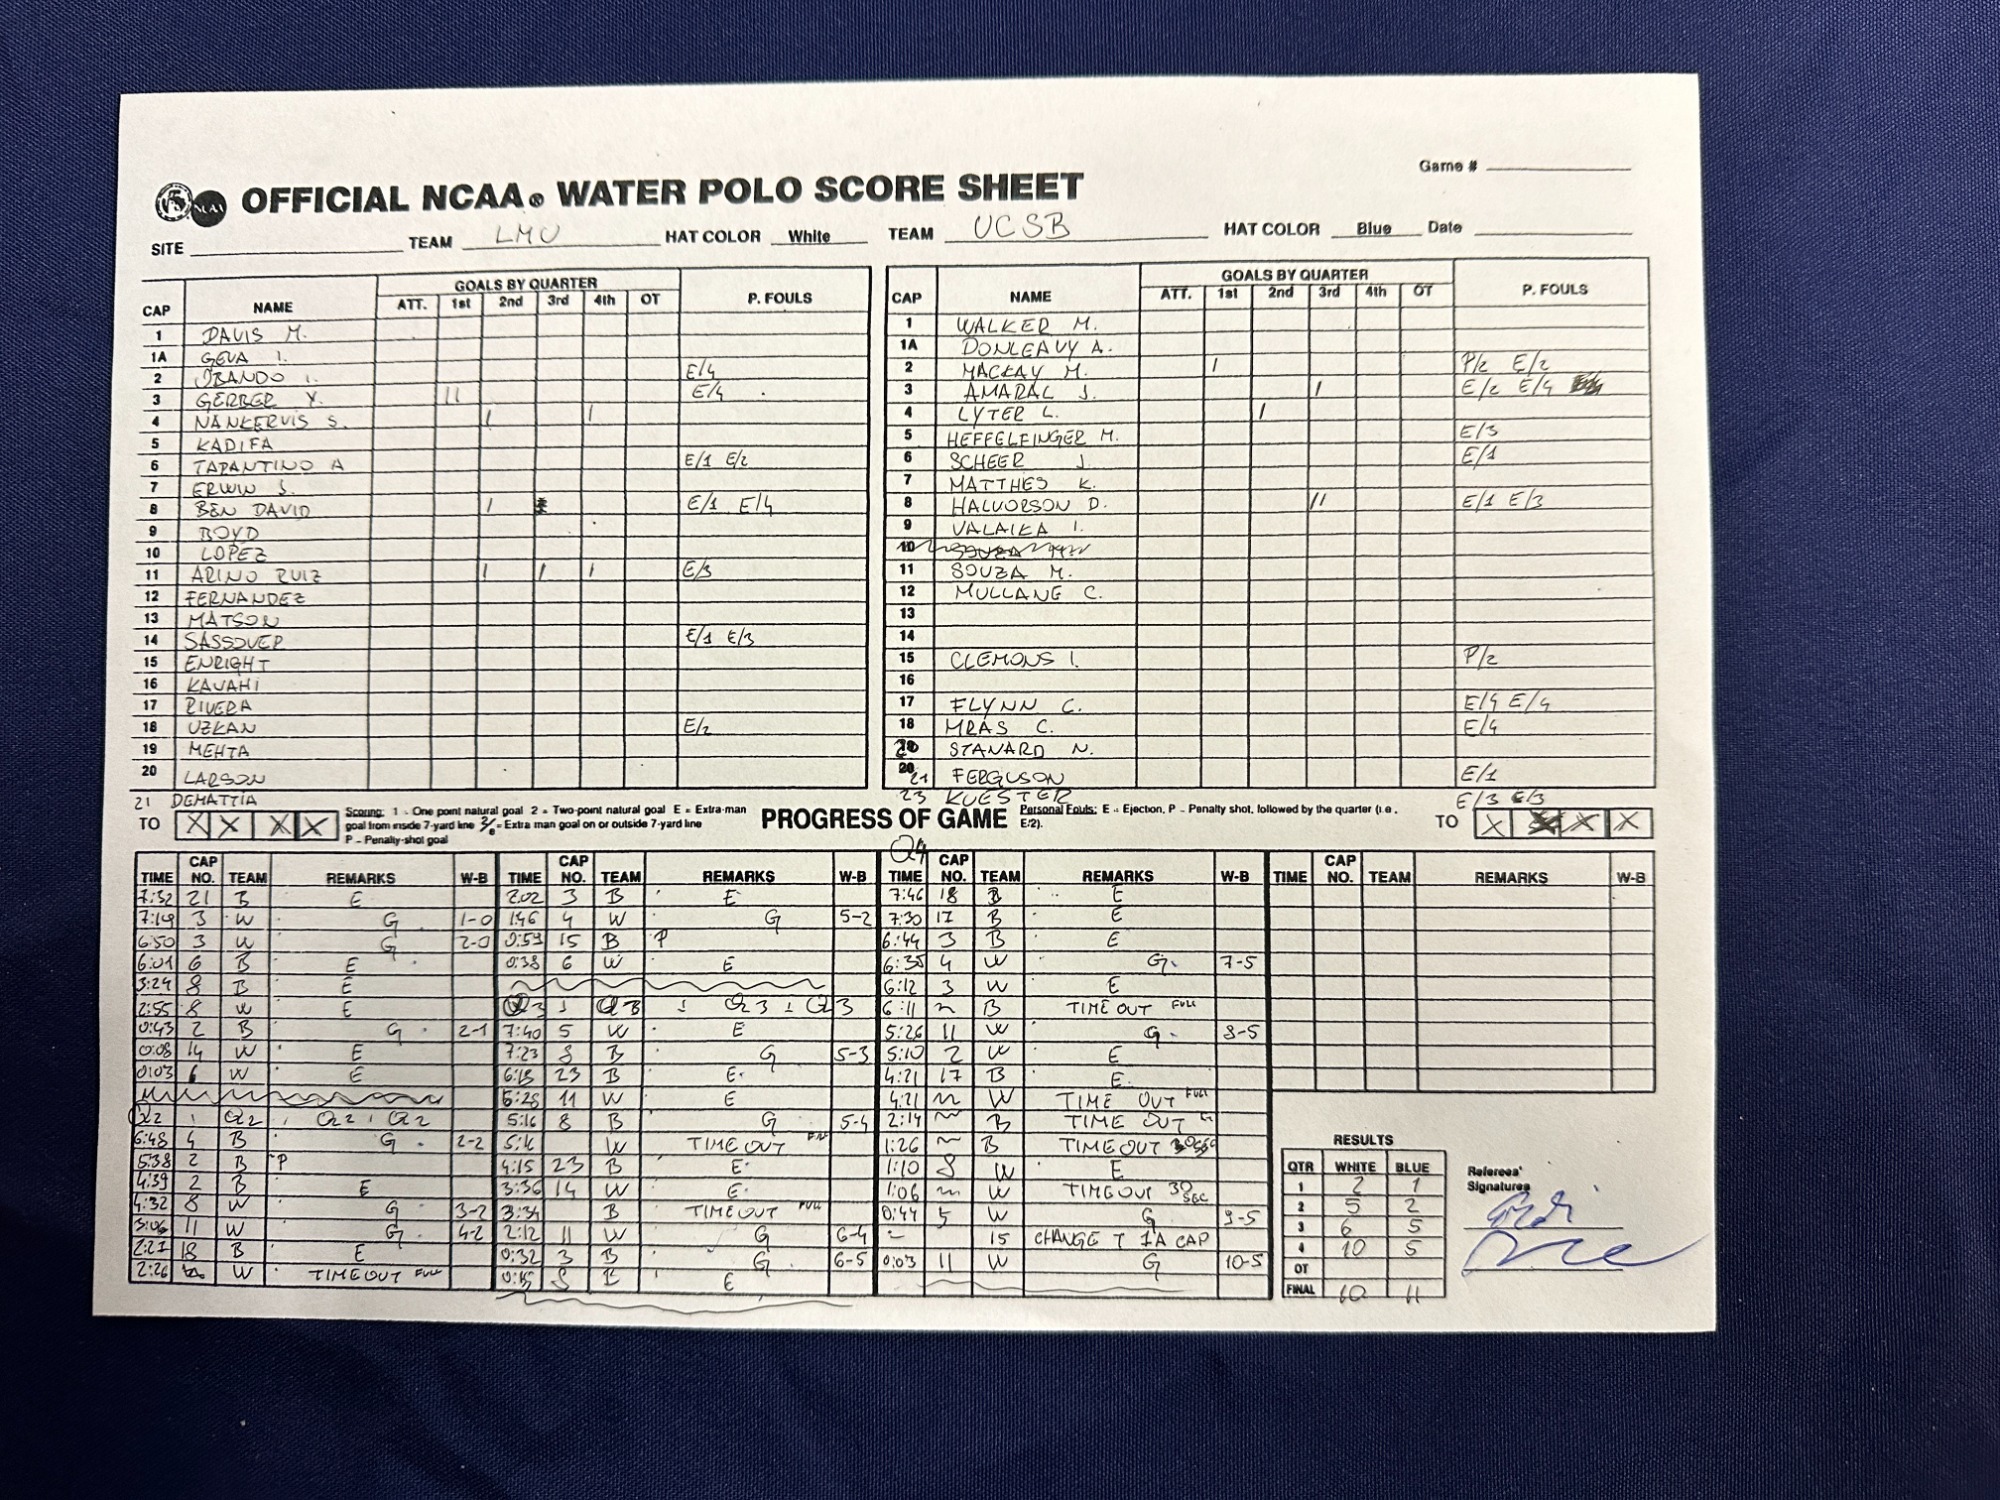 Game #
OFFICIAL NCAA® WATER POLO SCORE SHEET
SITE TEAM LMU HAT COLOR White TEAM UCSB HAT COLOR Blue Date
GOALS BY QUARTER GOALS BY QUARTER
CAP NAME ATT. 1st 2nd 3rd 4th OT P. FOULS CAP NAME ATT. 1st 2nd 3rd 4th OT P. FOULS
1 DAVIS M. 1 WALKER M.
1A GEVA I. 1A DONLEAVY A.
2 OBANDO I. E/4 2 MACKAY M. I P/2 E/2
3 GERBER Y. II E/4 3 AMARAL J. I E/2 E/4
4 NANKERVIS S. I I 4 LYTER L. I
5 KADIFA 5 HEFFELFINGER M. E/3
6 TARANTINO A E/1 E/2 6 SCHEER J. E/1
7 ERWIN J. 7 MATTHES K.
8 BEN DAVID I E/1 E/4 8 HALVORSON D. II E/1 E/3
9 BOYD 9 VALAIKA I.
10 LOPEZ 10
11 ARINO RUIZ I I I E/3 11 SOUZA M.
12 FERNANDEZ 12 MULLANE C.
13 MATSON 13
14 SASSOVER E/1 E/3 14
15 ENRIGHT 15 CLEMONS I. P/2
16 KAVAHI 16
17 RIVERA 17 FLYNN C. E/4 E/4
18 UZKAN E/2 18 MRAS C. E/4
19 MEHTA 20 STANARD N.
20 LARSON 21 FERGUSON E/1
21 DEMATTIA 23 KUESTER E/3 E/3
TO X X X X Scoring: 1 - One point natural goal 2 = Two-point natural goal E = Extra-man
goal from inside 7-yard line 2/E = Extra man goal on or outside 7-yard line
P - Penalty-shot goal
PROGRESS OF GAME
Personal Fouls: E - Ejection, P - Penalty shot, followed by the quarter (i.e.,
E/2).
TO X X X
Q4
TIME CAP NO. TEAM REMARKS W-B TIME CAP NO. TEAM REMARKS W-B TIME CAP NO. TEAM REMARKS W-B TIME CAP NO. TEAM REMARKS W-B
7:32 21 B E 2:02 3 B E 7:46 18 B E
7:19 3 W G 1-0 1:46 4 W G 5-2 7:30 17 B E
6:50 3 W G 2-0 0:59 15 B P 6:44 3 B E
6:01 6 B E 0:38 6 W E 6:35 4 W G 7-5
3:24 8 B E 6:12 3 W E
2:55 8 W E Q3 Q3 Q3 Q3 6:11 B TIME OUT FULL
0:43 2 B G 2-1 7:40 5 W E 5:26 11 W G 8-5
0:08 14 W E 7:23 8 B G 5-3 5:10 2 W E
0:03 6 W E 6:18 23 B E 4:21 17 B E
5:28 11 W E 4:21 W TIME OUT FULL
Q2 Q2 Q2 Q2 5:16 8 B G 5-4 2:14 B TIME OUT
6:48 4 B G 2-2 5:16 W TIMEOUT FULL 1:26 B TIMEOUT 30
5:38 2 B P 4:15 23 B E 1:10 8 W E
4:39 2 B E 3:36 14 W E 1:06 W TIMEOUT 30 SEC
4:32 8 W G 3-2 3:34 B TIMEOUT FULL 0:44 5 W G 9-5
3:06 11 W G 4-2 2:12 11 W G 6-4 15 CHANGE T 1A CAP
2:27 18 B E 0:32 3 B G 6-5 0:03 11 W G 10-5
2:26 W TIMEOUT FULL 0:15 8 B E
RESULTS
QTR WHITE BLUE
1 2 1
2 5 2
3 6 5
4 10 5
OT
FINAL 10 11
Referees'
Signatures